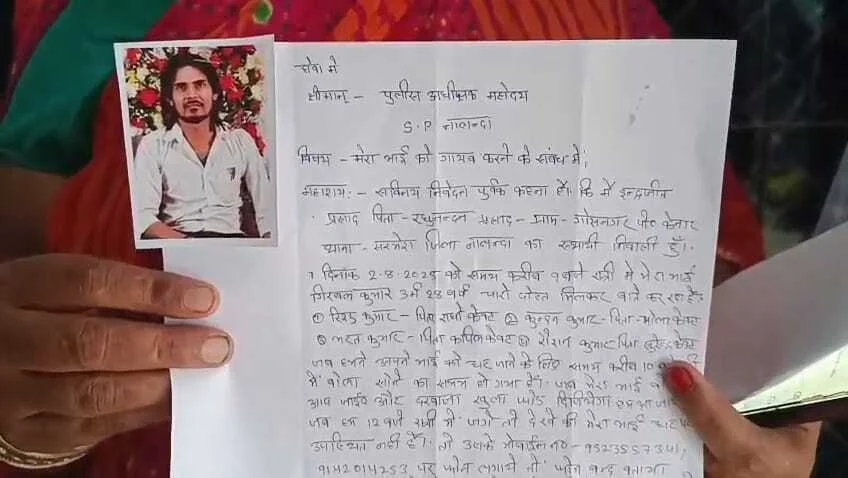 सेवा में
श्रीमान् - पुलीस अधीक्षक महोदय
S.P नालन्दा
विषय - मेरा भाई को गायब करने के संबंध में।
महाशय: - सविनय निवेदन पुर्वक कहना है। कि मैं इन्द्रजीत
प्रसाद पिता - रघुनन्दन प्रसाद - ग्राम - पो० केनार
थाना - सरमेरा जिला नालन्दा का स्थायी निवासी हुँ।
दिनांक 2-8-2025 को समय करीब 9 बजे रात्री में मेरा भाई
कुमार उम्र 28 वर्ष चारो दोस्त मिलकर बाते कर रहा है
① कुमार - पिता केवट ② कुन्दन कुमार - पिता - भोला केवट
③ भरत कुमार - पिता कपिल केवट ④ रौशन कुमार पिता
जब हमने अपने भाई को घर जाने के लिए समय करीब 10
में बोला सोने का समय हो गया है। जब मेरा भाई
आप जाईए और दरवाजा खुला छोड़ दिजियेगा
जब हम 12 बजे रात्री में जगे तो देखे की मेरा भाई घर पर
उपस्थित नहीं है। तो उसके मोबाईल नं० - 9523557341,
9142014253 पर फोन लगाये तो फोन बन्द बताया